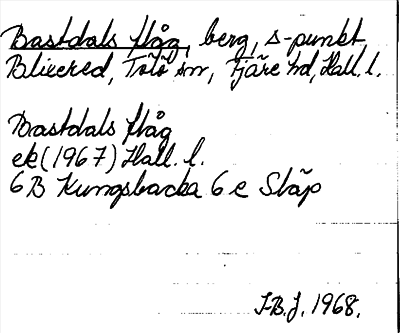 Bastdals flåg, berg, s-punkt
Blixered, Tölö sn, Fjäre hd, Hall. l.
Bastdals flåg
ek (1967) Hall. l.
6B Kungsbacka 6 e Släp
I-B.J. 1968.